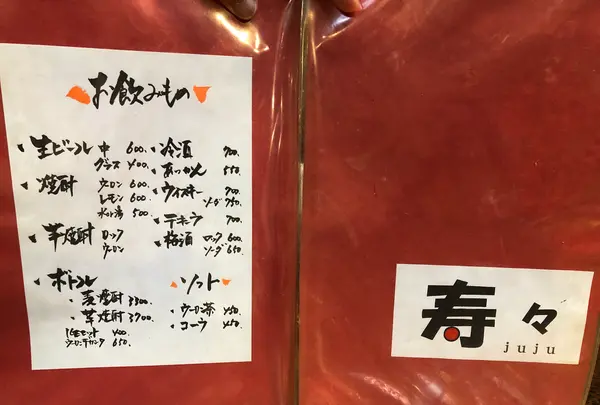 お飲みもの
生ビール 中 600.
グラス 400.
焼酎 ウーロン 600.
レモン 600.
水・お湯 500.
芋焼酎 ロック
ウーロン
ボトル
麦焼酎 3300.
芋焼酎 3700.
セット 400.
ウーロンデカンタ 650.
冷酒 900.
あつかん 550.
ウイスキー 700.
ソーダ 750.
テキーラ 700.
梅酒 ロック 600.
ソーダ 650.
ソフト
ウーロン茶 450.
コーラ 450.
寿々
juju